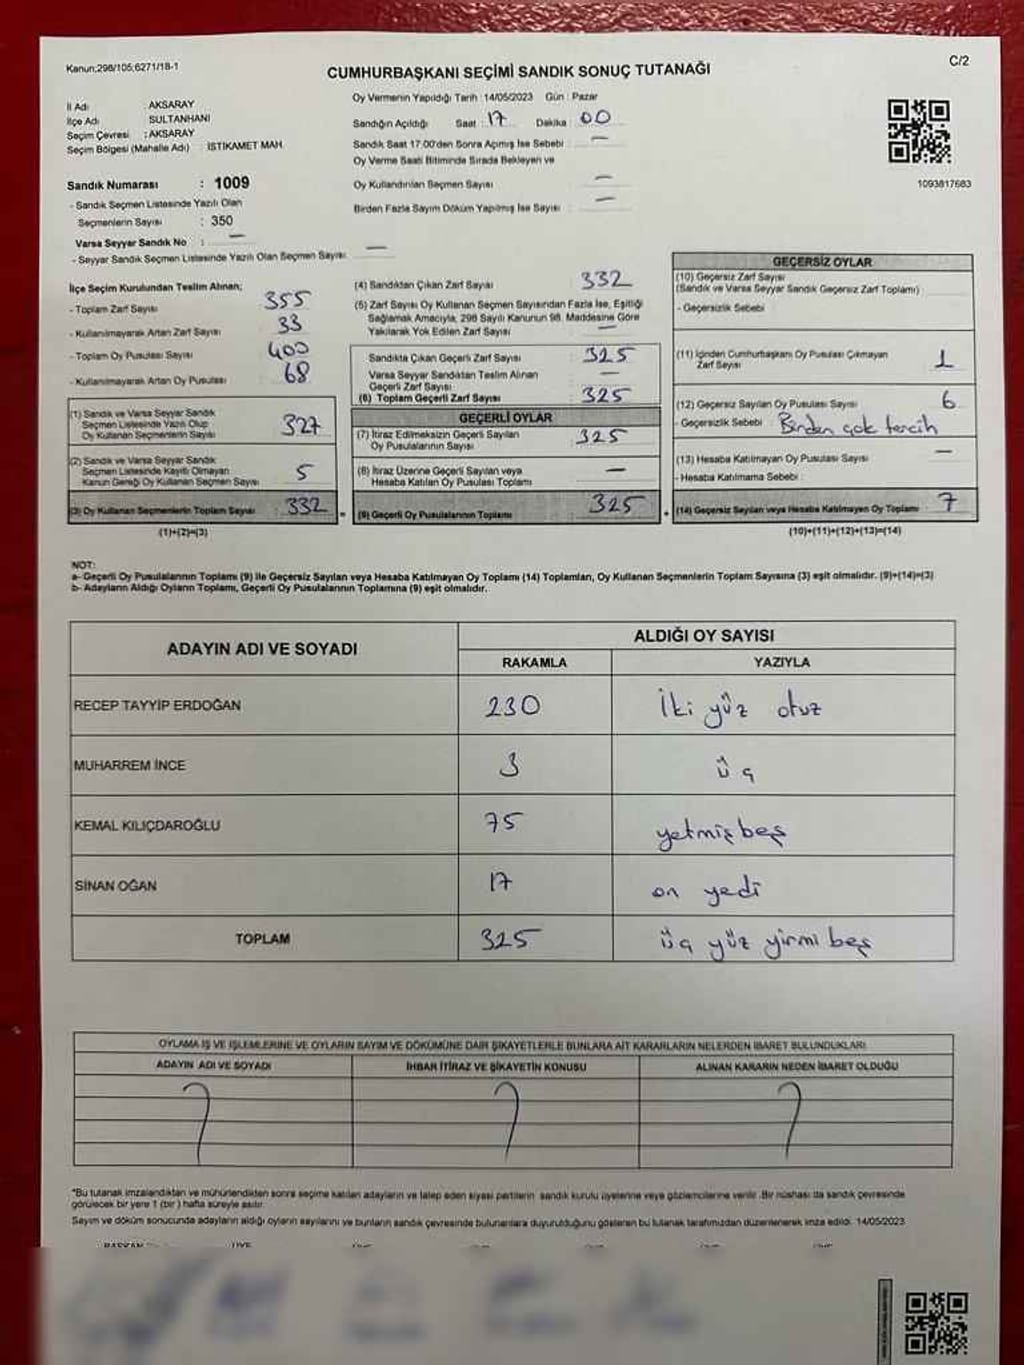 Kanun;298/105;6271/18-1
C/2
CUMHURBAŞKANI SEÇİMİ SANDIK SONUÇ TUTANAĞI
İl Adı : AKSARAY
İlçe Adı : SULTANHANI
Seçim Çevresi : AKSARAY
Seçim Bölgesi (Mahalle Adı) : İSTİKAMET MAH.
Sandık Numarası : 1009
- Sandık Seçmen Listesinde Yazılı Olan
Seçmenlerin Sayısı : 350
Varsa Seyyar Sandık No : —
- Seyyar Sandık Seçmen Listesinde Yazılı Olan Seçmen Sayısı: —
Oy Vermenin Yapıldığı Tarih : 14/05/2023 Gün : Pazar
Sandığın Açıldığı Saat : 17 Dakika : 00
Sandık Saat 17.00'den Sonra Açılmış İse Sebebi : —
Oy Verme Saati Bitiminde Sırada Bekleyen ve
Oy Kullandırılan Seçmen Sayısı : —
Birden Fazla Sayım Döküm Yapılmış İse Sayısı : —
1093817683
İlçe Seçim Kurulundan Teslim Alınan;
- Toplam Zarf Sayısı : 355
- Kullanılmayarak Artan Zarf Sayısı : 33
- Toplam Oy Pusulası Sayısı : 400
- Kullanılmayarak Artan Oy Pusulası : 68
(1) Sandık ve Varsa Seyyar Sandık
Seçmen Listesinde Yazılı Olup
Oy Kullanan Seçmenlerin Sayısı : 327
(2) Sandık ve Varsa Seyyar Sandık
Seçmen Listesinde Kayıtlı Olmayan
Kanun Gereği Oy Kullanan Seçmen Sayısı : 5
(3) Oy Kullanan Seçmenlerin Toplam Sayısı : 332
(1)+(2)=(3)
=
(4) Sandıktan Çıkan Zarf Sayısı : 332
(5) Zarf Sayısı Oy Kullanan Seçmen Sayısından Fazla İse, Eşitliği
Sağlamak Amacıyla, 298 Sayılı Kanunun 98. Maddesine Göre
Yakılarak Yok Edilen Zarf Sayısı : —
Sandıkta Çıkan Geçerli Zarf Sayısı : 325
Varsa Seyyar Sandıktan Teslim Alınan
Geçerli Zarf Sayısı : —
(6) Toplam Geçerli Zarf Sayısı : 325
GEÇERLİ OYLAR
(7) İtiraz Edilmeksizin Geçerli Sayılan
Oy Pusulalarının Sayısı : 325
(8) İtiraz Üzerine Geçerli Sayılan veya
Hesaba Katılan Oy Pusulası Toplamı : —
(9) Geçerli Oy Pusulalarının Toplamı : 325
+
GEÇERSİZ OYLAR
(10) Geçersiz Zarf Sayısı
(Sandık ve Varsa Seyyar Sandık Geçersiz Zarf Toplamı) :
- Geçersizlik Sebebi :
(11) İçinden Cumhurbaşkanı Oy Pusulası Çıkmayan
Zarf Sayısı : 1
(12) Geçersiz Sayılan Oy Pusulası Sayısı : 6
- Geçersizlik Sebebi : Birden çok tercih
(13) Hesaba Katılmayan Oy Pusulası Sayısı : —
- Hesaba Katılmama Sebebi :
(14) Geçersiz Sayılan veya Hesaba Katılmayan Oy Toplamı : 7
(10)+(11)+(12)+(13)=(14)
NOT:
a- Geçerli Oy Pusulalarının Toplamı (9) ile Geçersiz Sayılan veya Hesaba Katılmayan Oy Toplamı (14) Toplamları, Oy Kullanan Seçmenlerin Toplam Sayısına (3) eşit olmalıdır. (9)+(14)=(3)
b- Adayların Aldığı Oyların Toplamı, Geçerli Oy Pusulalarının Toplamına (9) eşit olmalıdır.
ADAYIN ADI VE SOYADI
ALDIĞI OY SAYISI
RAKAMLA YAZIYLA
RECEP TAYYİP ERDOĞAN 230 İki yüz otuz
MUHARREM İNCE 3 üç
KEMAL KILIÇDAROĞLU 75 yetmişbeş
SİNAN OĞAN 17 on yedi
TOPLAM 325 üç yüz yirmi beş
OYLAMA İŞ VE İŞLEMLERİNE VE OYLARIN SAYIM VE DÖKÜMÜNE DAİR ŞİKAYETLERLE BUNLARA AİT KARARLARIN NELERDEN İBARET BULUNDUKLARI
ADAYIN ADI VE SOYADI İHBAR İTİRAZ VE ŞİKAYETİN KONUSU ALINAN KARARIN NEDEN İBARET OLDUĞU
*Bu tutanak imzalandıktan ve mühürlendikten sonra seçime katılan adayların ve talep eden siyasi partilerin sandık kurulu üyelerine veya gözlemcilerine verilir. Bir nüshası da sandık çevresinde
görülecek bir yere 1 (bir) hafta süreyle asılır.
Sayım ve döküm sonucunda adayların aldığı oyların sayılarını ve bunların sandık çevresinde bulunanlara duyurulduğunu gösteren bu tutanak tarafımızdan düzenlenerek imza edildi. 14/05/2023